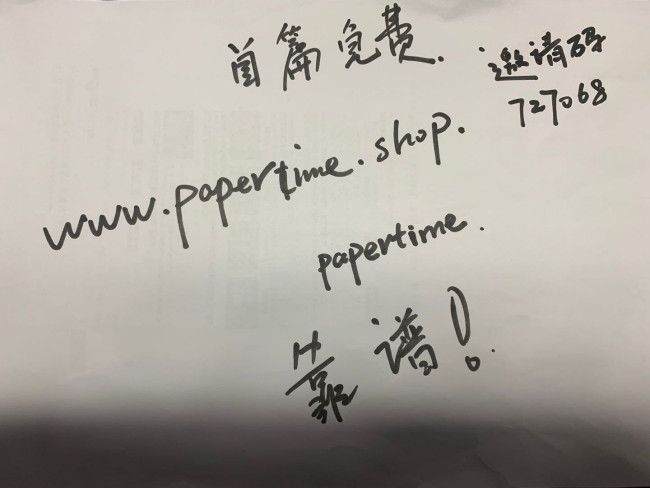 首篇免费.
邀请码
727068
www.papertime.shop.
papertime.
靠谱!